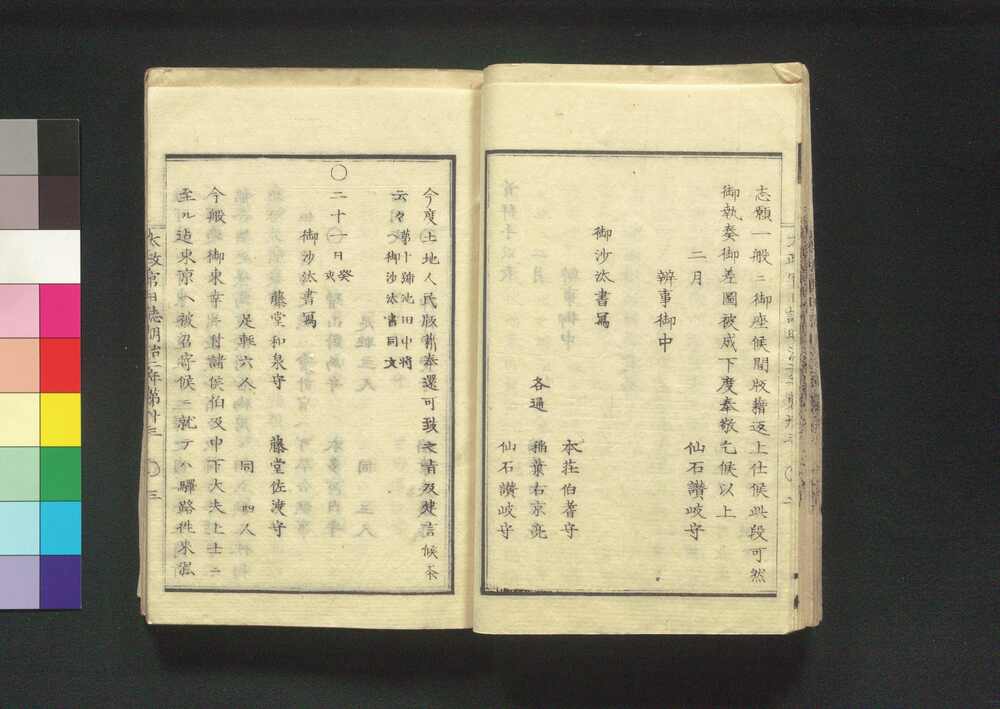 志願一般ニ御座候間版籍返上仕候此段可然
御執奏御差圖被成下度奉敬乞候以上
二月　仙石讃岐守
辨事御中
御沙汰書寫
本莊伯耆守
各通　稲葉右京亮
仙石讃岐守
今度土地人民版籍奉還可致之旨及建言候条
云々　第十號池田中將
へ御沙汰書同文
〇
二十一日癸亥
御沙汰書寫
藤堂和泉守　藤堂佐渡守
足輕六人　同四人
今般御東幸ニ付諸侯伯及中下大夫上士ニ
至ル迠東京ヘ被召寄候ニ就テハ驛路性来混
太政官日誌明治二年第廿三　〇三